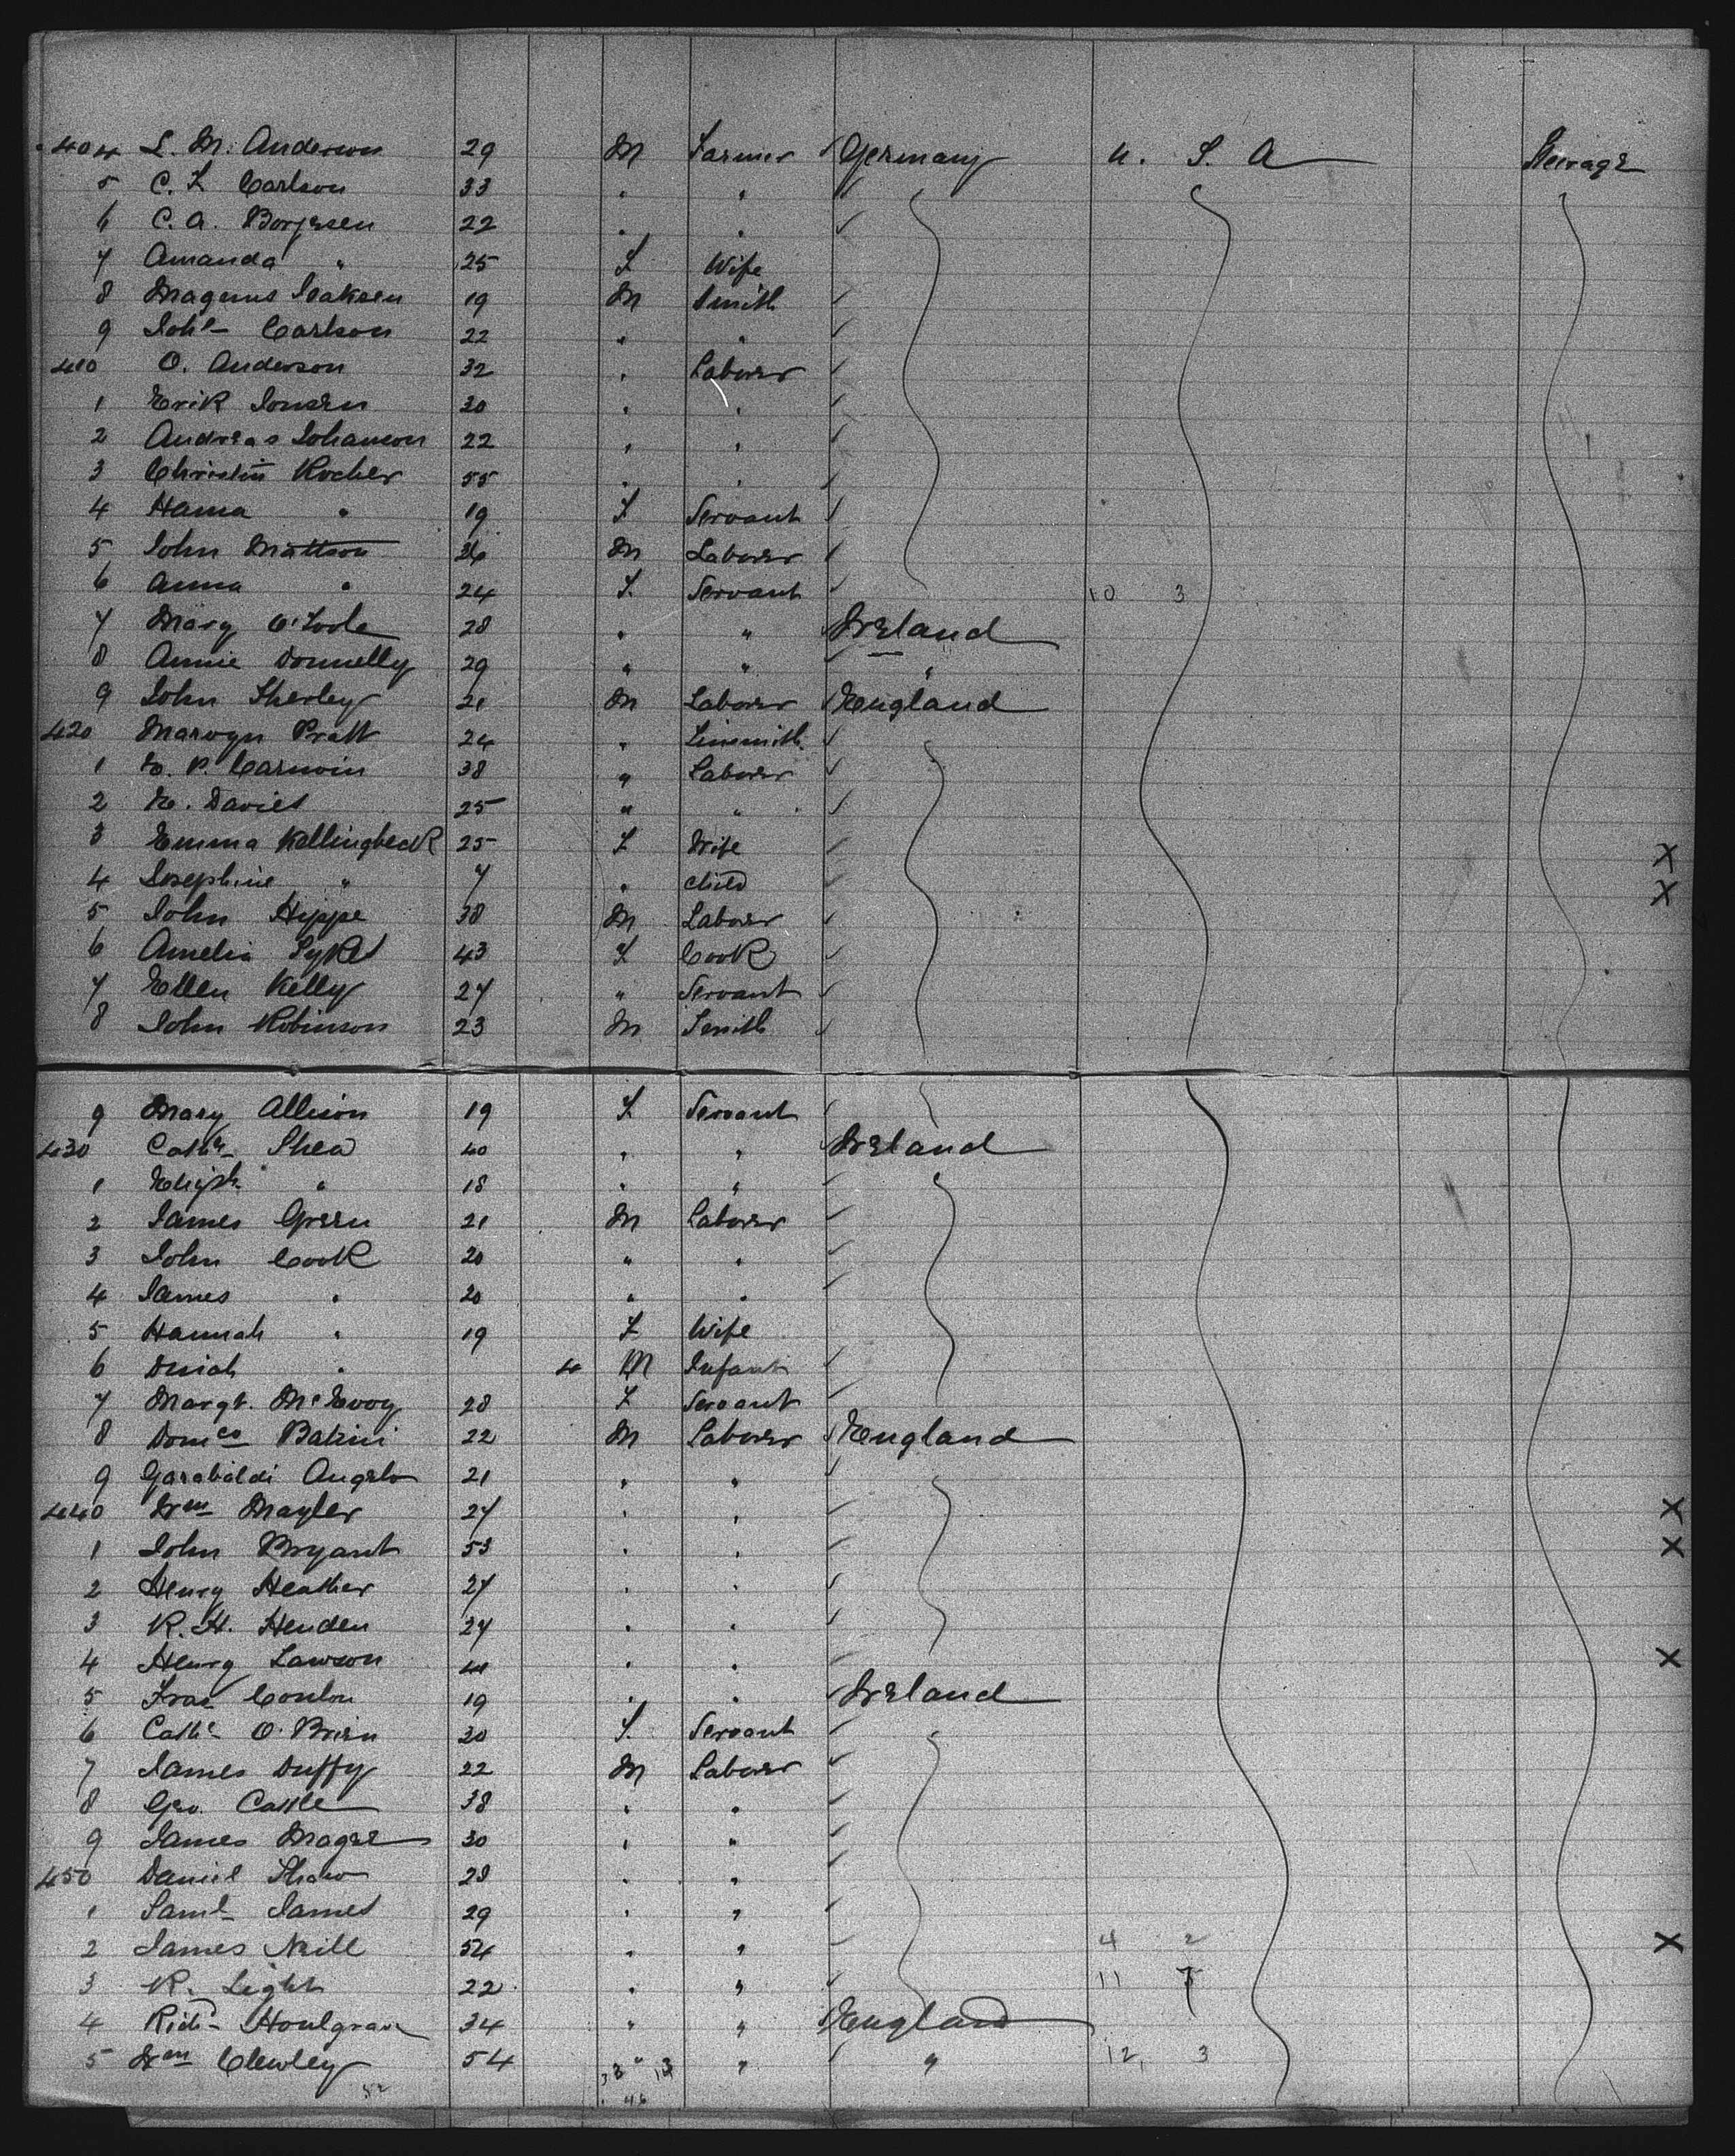 404 L. M. Anderson 29 M Farmer ✓ Germany U. S. A Steerage
5 C. F. Carlson 33 " " ✓
6 C. A. Borjesen 22 " " ✓
7 Amanda " 25 F Wife
8 Magnus Isaksen 19 M Smith ✓
9 Johs Carlson 22 " " ✓
410 O. Anderson 32 " Laborer ✓
1 Erik Jonsen 30 " " ✓
2 Andreas Johanson 22 " " ✓
3 Christin Kocher 55 " " ✓
4 Hanna " 19 F Servant ✓
5 John Mattson 26 M Laborer ✓
6 Anna " 24 F. Servant ✓ 10 3
7 Mary O'Toole 28 " " ✓ Ireland
8 Annie Donnelly 29 " " ✓ "
9 John Sherley 21 M Laborer ✓ England
420 Marwyn Pratt 24 " Tinsmith ✓
1 E. P. Carnoin 38 " Laborer ✓
2 E. Davies 25 " " ✓
3 Emma Kellingbeck 25 F Wife ✓ X
4 Josephine " 7 " Child ✓ X
5 John Hippe 38 M Laborer ✓
6 Amelia Sykes 43 F Cook ✓
7 Ellen Kelly 27 " Servant ✓
8 John Robinson 23 M Smith ✓
9 Mary Allison 19 F Servant ✓
430 Cathe Shea 40 " " ✓ Ireland
1 Elizth " 18 " " ✓
2 James Green 21 M Laborer ✓
3 John Cook 20 " " ✓
4 James " 20 " " ✓
5 Hannah " 19 F Wife
6 " 4 M Infant ✓
7 Margt. McEvoy 28 F Servant ✓
8 Domco Bakini 22 M Laborer ✓ England
9 Garabaldi Angelo 21 " " ✓
440 Wm Mayler 27 " " ✓ X
1 John Bryant 53 " " ✓ X
2 Henry Heather 27 " " ✓
3 R. H. Henden 24 " " ✓
4 Henry Lawson 41 " " ✓ X
5 Fras Conlon 19 " " ✓ Ireland
6 Cathe O'Brien 30 F. Servant ✓
7 James Duffy 22 M Laborer ✓
8 Geo. Castle 38 " " ✓
9 James Magee 30 " " ✓
450 Daniel Shaw 28 " " ✓
1 Saml James 29 " " ✓
2 James Neill 54 " " ✓ 4 2 X
3 R. Light 22 " " ✓ 11 5
4 Richd Houlgrave 34 " " ✓ England
5 Wm Clewley 54 " " ✓ " 12 3
46